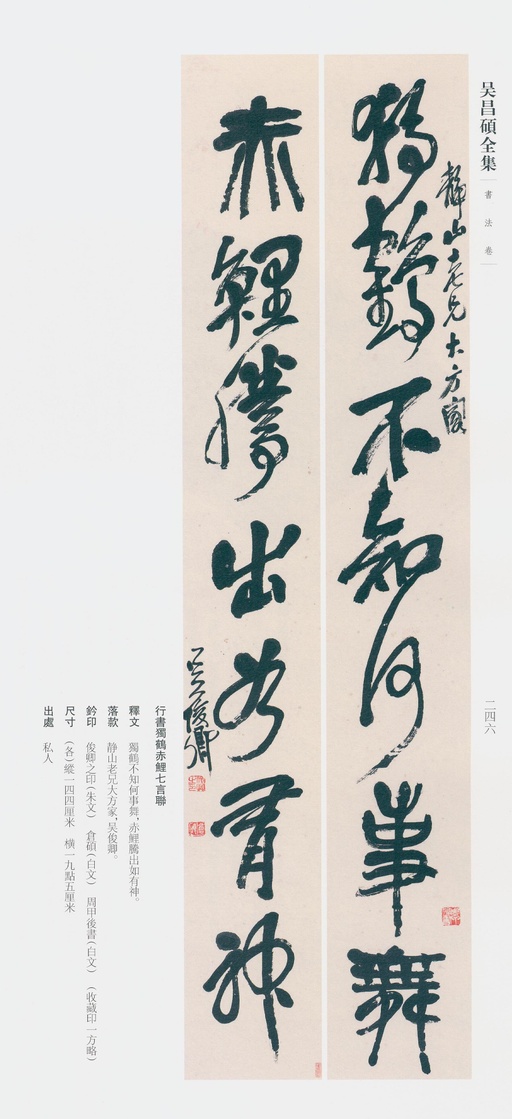 吴昌碩全集
書法卷
二四六
靜山老兄大方家
獨鶴不知何事舞
赤鯉騰出如有神
吳俊卿
行書獨鶴赤鯉七言聯
釋文 獨鶴不知何事舞,赤鯉騰出如有神。
落款 静山老兄大方家,吴俊卿。
鈐印 俊卿之印(朱文) 倉碩(白文) 周甲後書(白文) (收藏印一方略)
尺寸 (各)縱一四四厘米 横一九點五厘米
出處 私人